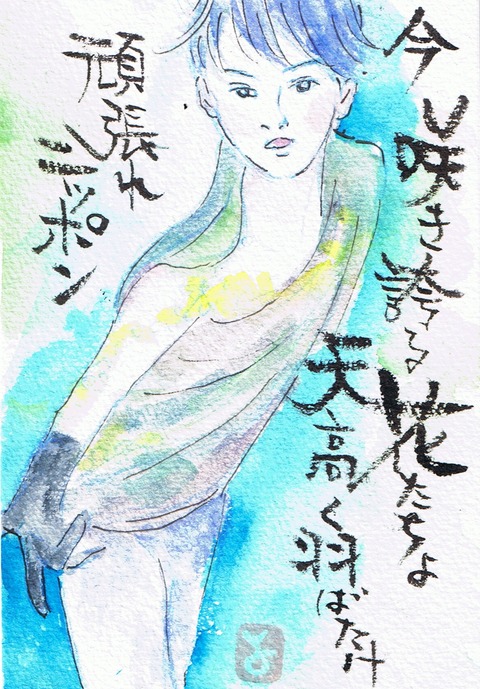 今し咲き誇る花たちよ
天高く羽ばたけ
頑張れ
ニッポン